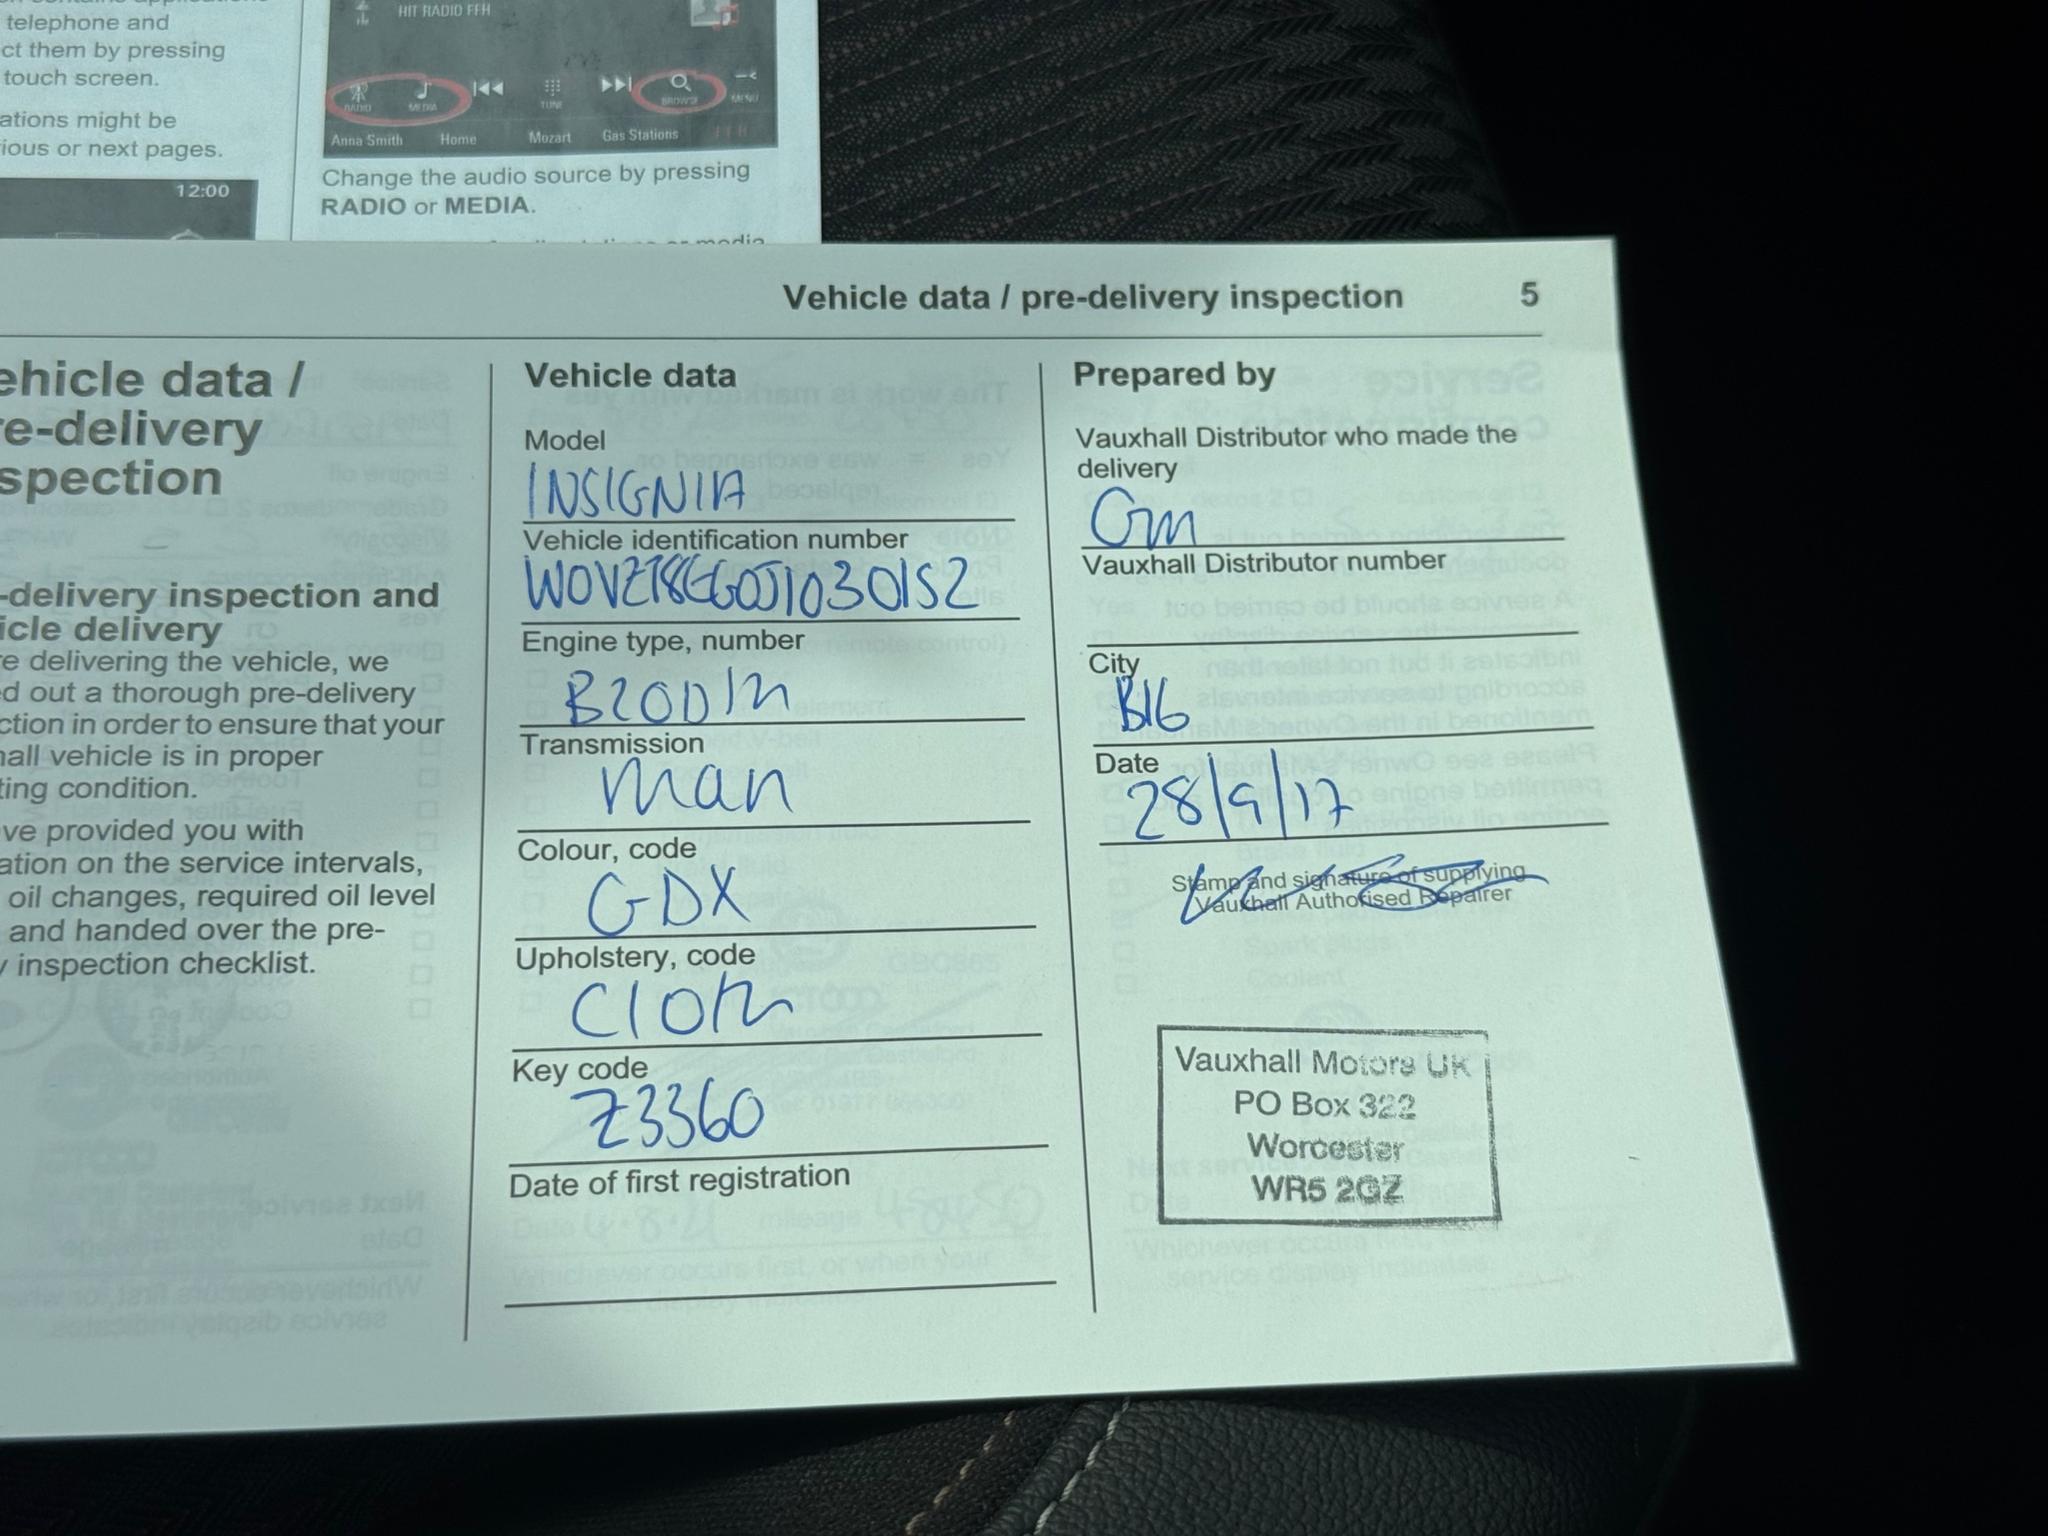 telephone and
ct them by pressing
touch screen.
ations might be
ious or next pages.
12:00
HIT RADIO FFH
RADIO
MEDIA
TUNE
BROWSE
MENU
Anna Smith Home Mozart Gas Stations FFH
Change the audio source by pressing
RADIO or MEDIA.
Vehicle data / pre-delivery inspection 5
ehicle data /
re-delivery
spection
-delivery inspection and
icle delivery
re delivering the vehicle, we
ed out a thorough pre-delivery
ction in order to ensure that your
hall vehicle is in proper
ting condition.
ve provided you with
ation on the service intervals,
oil changes, required oil level
and handed over the pre-
y inspection checklist.
Vehicle data
Model
INSIGNIA
Vehicle identification number
Engine type, number
B20DTH
Transmission
man
Colour, code
GDX
Upholstery, code
Cloth
Key code
Z3360
Date of first registration
Prepared by
Vauxhall Distributor who made the
delivery
Gm
Vauxhall Distributor number
City
Date
28/9/17
Stamp and signature of supplying
Vauxhall Authorised Repairer
Vauxhall Motors UK
PO Box 322
Worcester
WR5 2GZ